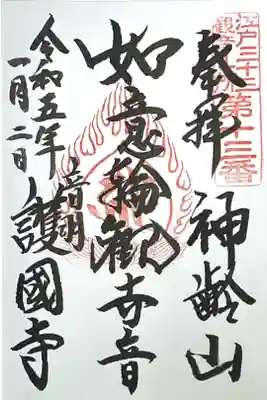 江戸三十三
観音札所第十三番
奉拝
神齢山
如意輪観世音
令和五年
一月二日
音羽
護國寺